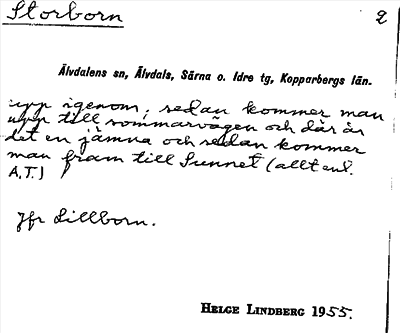 Storborn 2
Älvdalens sn, Älvdals, Särna o. Idre tg, Kopparbergs län.
upp igenom, sedan kommer man
upp till sommarvägen och där är
det en jämna och sedan kommer
man fram till Sunnet (allt enl.
A.T.)
Jfr Lillborn.
HELGE LINDBERG 1955.